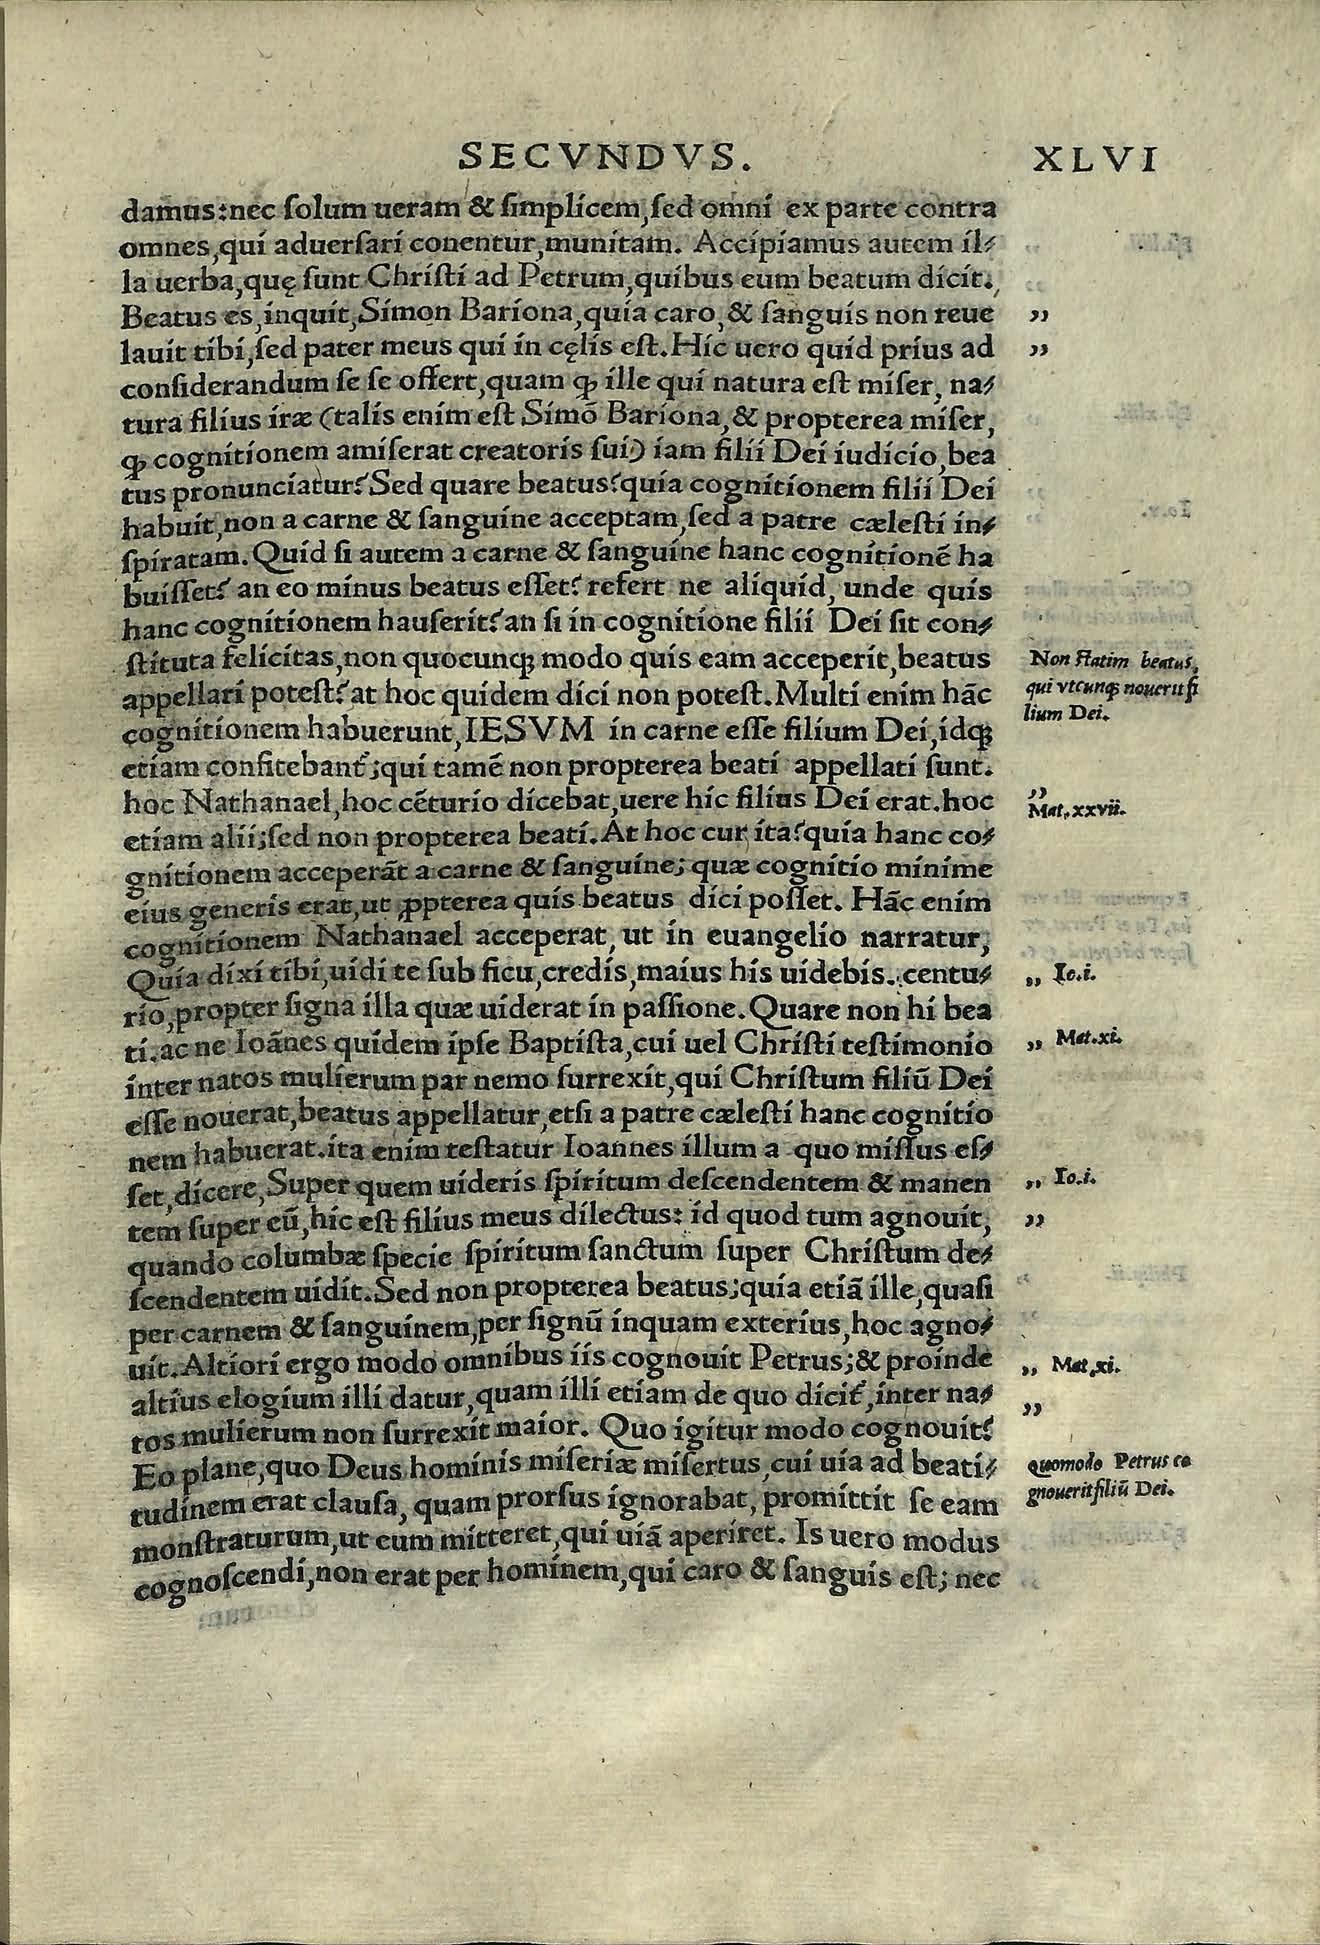 SECVNDVS. XLVI
damus: nec ſolum ueram & ſimplicem, ſed omni ex parte contra
omnes, qui aduerſari conentur, munitam. Accipiamus autem il⸗
la uerba, quę ſunt Chriſti ad Petrum, quibus eum beatum dicit.
Beatus es, inquit, Simon Bariona, quia caro, & ſanguis non reue ,,
lauit tibi, ſed pater meus qui in cęlis eſt. Hic uero quid prius ad ,,
conſiderandum ſe ſe offert, quam ꝙ ille qui natura eſt miſer, na⸗
tura filius iræ (talis enim eſt Simõ Bariona, & propterea miſer,
ꝙ cognitionem amiſerat creatoris ſui) iam filii Dei iudicio, bea
tus pronunciatur? Sed quare beatus? quia cognitionem filii Dei
habuit, non a carne & ſanguine acceptam, ſed a patre cæleſti in⸗
ſpiratam. Quid ſi autem a carne & ſanguine hanc cognitionẽ ha
buiſſet? an eo minus beatus eſſet? refert ne aliquid, unde quis
hanc cognitionem hauſerit? an ſi in cognitione filii Dei ſit con⸗
ſtituta felicitas, non quocunqꝫ modo quis eam acceperit, beatus
appellari poteſt? at hoc quidem dici non poteſt. Multi enim hãc
cognitionem habuerunt, IESVM in carne eſſe filium Dei, idqꝫ
etiam confitebant᷑; qui tamẽ non propterea beati appellati ſunt.
hoc Nathanael, hoc cẽturio dicebat, uere hic filius Dei erat. hoc
etiam alii; ſed non propterea beati. At hoc cur ita? quia hanc co⸗
gnitionem acceperãt a carne & ſanguine; quæ cognitio minime
eius generis erat, ut ꝓpterea quis beatus dici poſſet. Hãc enim
cognitionem Nathanael acceperat, ut in euangelio narratur,
Quia dixi tibi, uidi te ſub ficu, credis, maius his uidebis. centu⸗
rio, propter ſigna illa quæ uiderat in paſſione. Quare non hi bea
ti. ac ne Ioãnes quidem ipſe Baptiſta, cui uel Chriſti teſtimonio
inter natos mulierum par nemo ſurrexit, qui Chriſtum filiũ Dei
eſſe nouerat, beatus appellatur, etſi a patre cæleſti hanc cognitio
nem habuerat. ita enim teſtatur Ioannes illum a quo miſſus eſ⸗
ſet, dicere, Super quem uideris ſpiritum deſcendentem & manen
tem ſuper eũ, hic eſt filius meus dilectus: id quod tum agnouit,
quando columbæ ſpecie ſpiritum ſanctum ſuper Chriſtum de⸗
ſcendentem uidit. Sed non propterea beatus; quia etiã ille, quaſi
per carnem & ſanguinem, per ſignũ inquam exterius, hoc agno⸗
uit. Altiori ergo modo omnibus iis cognouit Petrus; & proinde
altius elogium illi datur, quam illi etiam de quo dicit᷑, inter na⸗
tos mulierum non ſurrexit maior. Quo igitur modo cognouit?
Eo plane, quo Deus hominis miſeriæ miſertus, cui uia ad beati⸗
tudinem erat clauſa, quam prorſus ignorabat, promittit ſe eam
monſtraturum, ut eum mitteret, qui uiã aperiret. Is uero modus
cognoſcendi, non erat per hominem, qui caro & ſanguis eſt; nec
Non ſtatim beatus,
qui vtcunqꝫ nouerit fi
lium Dei.
,,
Mat. xxvii.
,, Io. i.
,, Mat. xi.
,, Io. i.
,,
,, Mat. xi.
,,
quomodo Petrus co
gnouerit filiũ Dei.